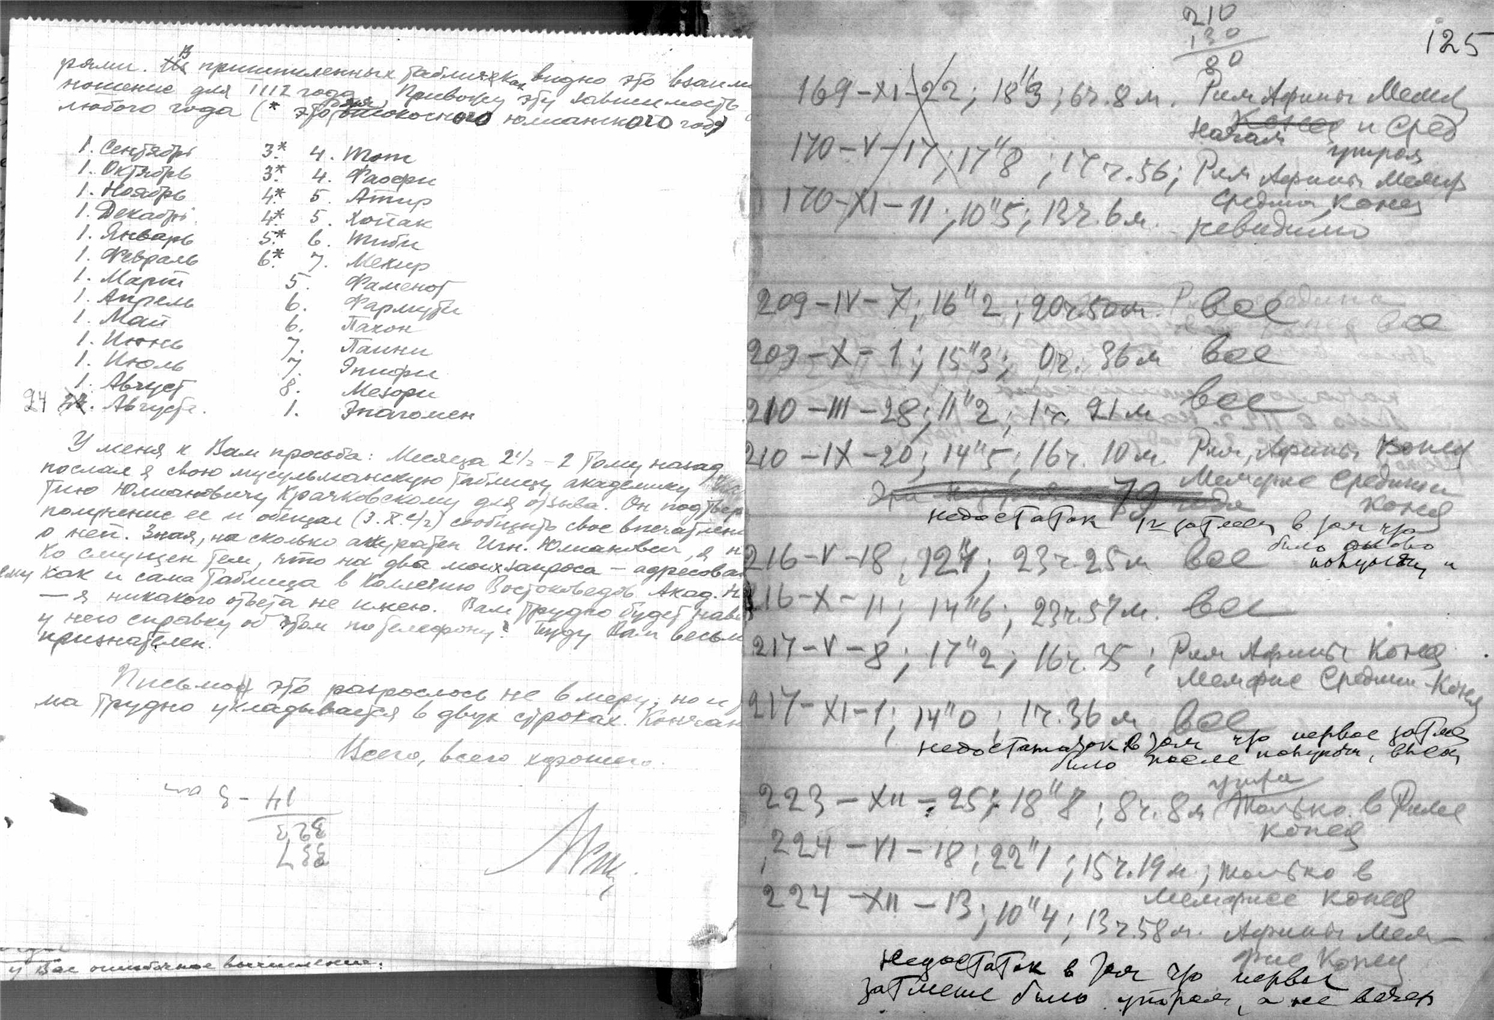 рями. В пришпиленных табличках видно это взаим
ношение для 1112 года. Привожу эту зависимость
любого года (* это для високосного юлианского года)
1. Сентябрь 3.* 4. Тот
1. Октябрь 3.* 4. Фаофи
1. Ноябрь 4.* 5. Атир
1. Декабрь 4.* 5. Хойак
1. Январь 5.* 6. Тиби
1. Февраль 6.* 7. Мехир
1. Март 5. Фаменот
1. Апрель 6. Фармути
1. Май 6. Пахон
1. Июнь 7. Паини
1. Июль 7. Эпифи
1. Август 8. Мезори
24 Августа. 1. Эпагомен
У меня к Вам просьба: Месяца 2½-2 тому назад
послал я свою мусульманскую таблицу академику
тию Юлиановичу Крачковскому для отзыва. Он подтвер
получение ее и обещал (3.X.) сообщить свое впечатлени
о ней. Зная, насколько аккуратен Игн. Юлианович, я н
ко смущен тем, что на два моих запроса — адресован
как и сама таблица в Комитет Востоковедов Акад. Н
— я никакого ответа не имею. Вам трудно будет навес
у него справку об этом по телефону? Буду Вам весьм
признателен.
Письмо это разрослось не в меру, но и
ма трудно укладывается в двух строках. Кончаю
Всего, всего хорошего.
14 - 3
323
337
у Вас ошибочное вычисление.
210
130
80
125
169-XI-22; 18"3; 6ч. 8м. Рим Афины Мемф
начал и Сред
утром
170-V-17; 17"8; 17ч. 56; Рим Афины Мемфис
Средина, конец
170-XI-11; 10"5; 13ч. 6м. невидимо
209-IV-7; 16"2; 20ч. 50м. все
209-X-1; 15"3; 0ч. 36м все
210-III-28; 11"2; 1ч. 21м все
210-IX-20; 14"5; 16ч. 10м. Рим, Афины Конец
Мемфис Средина
конец
79 года
недостаток затмен в том что
было около
полуночи и
216-V-18; 12"1; 23ч. 25м все
216-X-11; 14"6; 23ч. 57м. все
217-V-8; 17"2; 16ч. 35; Рим Афины Конец
Мемфис Средина-Конец
217-XI-1; 14"0; 1ч. 36м все
недостаток в том что первое затме
было после полуночи,
утра
223-XII-25; 18"8; 8ч. 8м только в Риме
конец
224-VI-18; 22"1; 15ч. 19м.; только в
Мемфисе конец
224-XII-13; 10"4; 13ч. 58м. Афины Мем-
фис Конец
недостаток в том что первое
затмение было утром, а не вечер